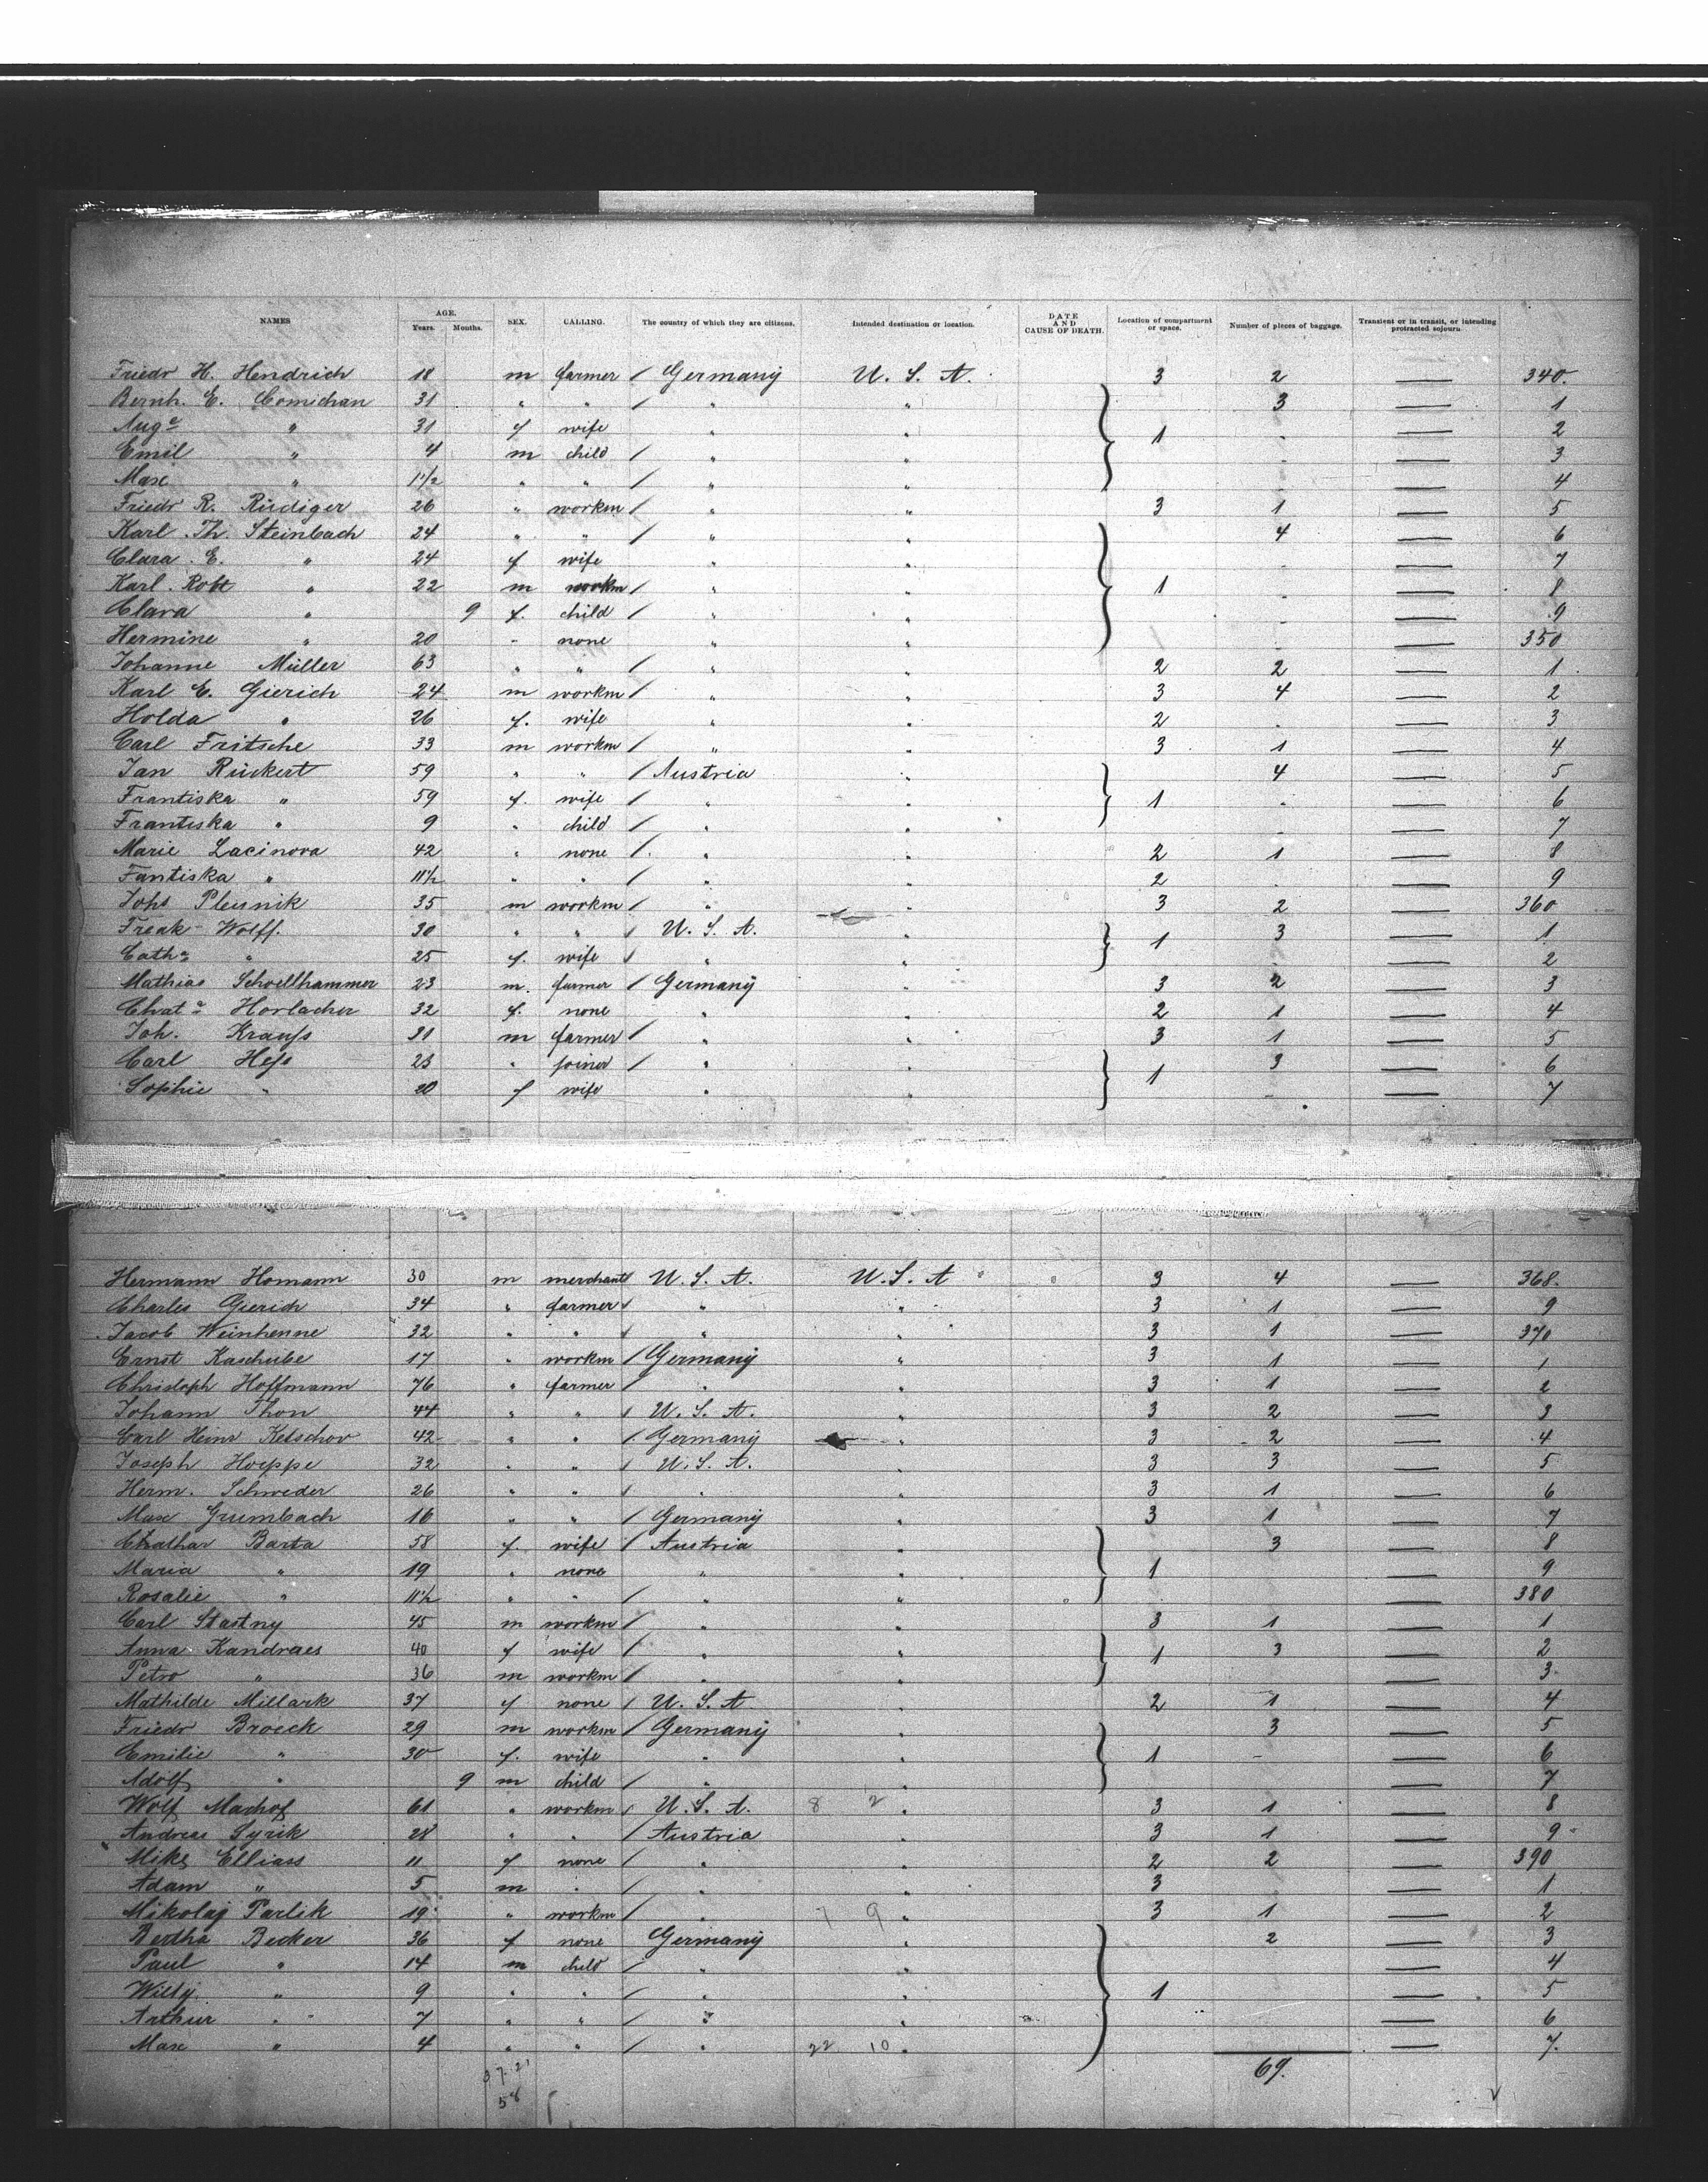 NAMES AGE. Years. Months. SEX. CALLING. The country of which they are citizens. Intended destination or location. DATE AND CAUSE OF DEATH. Location of compartment or space. Number of pieces of baggage. Transient or in transit, or intending protracted sojourn
Friedr H. Hendrich 18 m farmer / Germany U. S. A. 3 2 — 340.
Bernh. E. Comichan 31 " " / " " 3 — 1
Auga " 31 f wife " " 1 - — 2
Emil " 4 m child / " " - — 3
Max " 11/2 " " / " " - — 4
Friedr R. Rüdiger 26 " workm / " " 3 1 — 5
Karl Th. Steinbach 24 " " / " " 4 — 6
Clara E. " 24 f wife " " - — 7
Karl Robt " 22 m workm / " " 1 - — 8
Clara " 9 f. child / " " - — 9
Hermine " 20 " none " " - — 350
Johanne Müller 63 " " / " " 2 2 — 1
Karl E. Gierich 24 m workm / " " 3 4 — 2
Holda " 26 f. wife " " 2 - — 3
Carl Fritsche 33 m workm / " " 3 1 — 4
Jan Rückert 59 " " / Austria " 4 — 5
Frantiska " 59 f. wife / " " 1 - — 6
Frantiska " 9 " child / " " - — 7
Marie Lacinova 42 " none / " " 2 1 — 8
Fantiska " 11 1/2 " " / " " 2 - — 9
Johs Pleunik 35 m workm / " " 3 2 — 360
Freak Wolff. 30 " " / U. S. A. " 1 3 — 1
Catha " 25 f. wife / " " - — 2
Mathias Schoellhammer 23 m. farmer / Germany " 3 2 — 3
Chata Horlacher 32 f. none " " 2 1 — 4
Joh. Krauss 31 m farmer / " " 3 1 — 5
Carl Hess 23 " joiner / " " 3 — 6
Sophie " 20 f wife " " 1 - — 7
Hermann Homann 30 m merchant U. S. A. U. S. A 3 4 — 368.
Charles Gierich 34 " farmer / " " 3 1 — 9
Jacob Weinhenne 32 " " / " " 3 1 — 370
Ernst Kaschube 17 " workm / Germany " 3 1 — 1
Christoph Hoffmann 76 " farmer / " " 3 1 — 2
Johann Thon 44 " " / U. S. A. " 3 2 — 3
Carl Heinr Ketschov 42 " " / Germany " 3 2 — 4
Joseph Hoeppe 32 " " / U. S. A. " 3 3 — 5
Herm. Schweder 26 " " / " " 3 1 — 6
Max Grumbach 16 " " / Germany " 3 1 — 7
Chathar Barta 58 f. wife / Austria " 3 — 8
Maria " 19 " none " " 1 — 9
Rosalie " 11 1/2 " " / " " — 380
Carl Stastny 45 m workm / " " 3 1 — 1
Anna Kandraes 40 f wife / " " 1 3 — 2
Petro " 36 m workm / " " — 3
Mathilde Millark 37 f none / U. S. A " 2 1 — 4
Friedr Broeck 29 m workm / Germany " 3 — 5
Emilie " 30 f. wife " " 1 - — 6
Adolf " 9 m child / " " — 7
Wolf Machof 61 " workm / U. S. A. 8 2 " 3 1 — 8
Andreas Syrik 28 " " / Austria " 3 1 — 9
Mike Elliass 11 f none / " " 2 2 — 390
Adam " 5 m " / " " 3 — 1
Mikolaj Parlik 19 " workm / " 7 9 " 3 1 — 2
Bertha Becker 36 f none Germany " 2 — 3
Paul " 14 m child / " " — 4
Willy " 9 " " / " " 1 — 5
Arthur " 7 " " / " " — 6
Max " 4 " " / " 22 10 " — 7.
37.21 69.
58